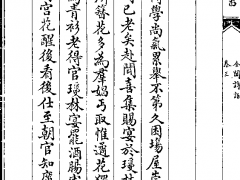 全閩詩話
卷三
學尚氣累舉不第久困場屋
已老矣赴聞喜集賜宴於瓊林
簪花多為群娼丐取惟適花
青衫老得官瓊林宴罷酒腸
宮花醒後看後仕至朝官知